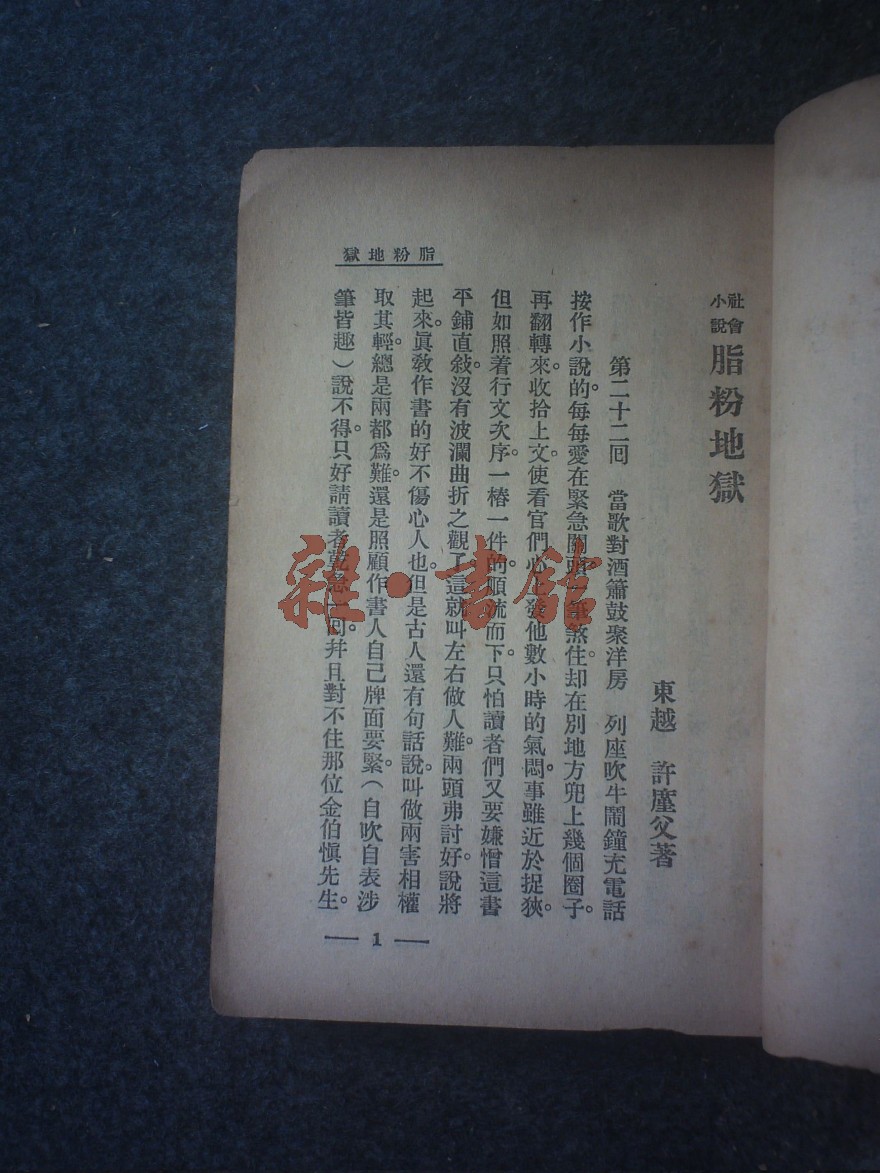 社會小說 脂粉地獄
東越 許廑父著
第二十二回 當歌對酒簫鼓聚洋房 列座吹牛鬧鐘充電話
按作小說的。每每愛在緊急關頭一筆煞住。却在別地方兜上幾個圈子。
再翻轉來。收拾上文。使看官們心上發他數小時的氣悶。事雖近於捉狹。
但如照着行文次序。一樁一件的。順流而下。只怕讀者們又要嫌憎這書
平鋪直敍。沒有波瀾曲折之觀了。這就叫左右做人難。兩頭弗討好。說將
起來。眞敎作書的好不傷心人也。但是古人還有句話說。叫做兩害相權
取其輕。總是兩都爲難。還是照顧作書人自己牌面要緊。(自吹自表涉
筆皆趣)說不得。只好請讀者乾急一回。幷且對不住那位金伯愼先生。
脂粉地獄
1
雜·書館